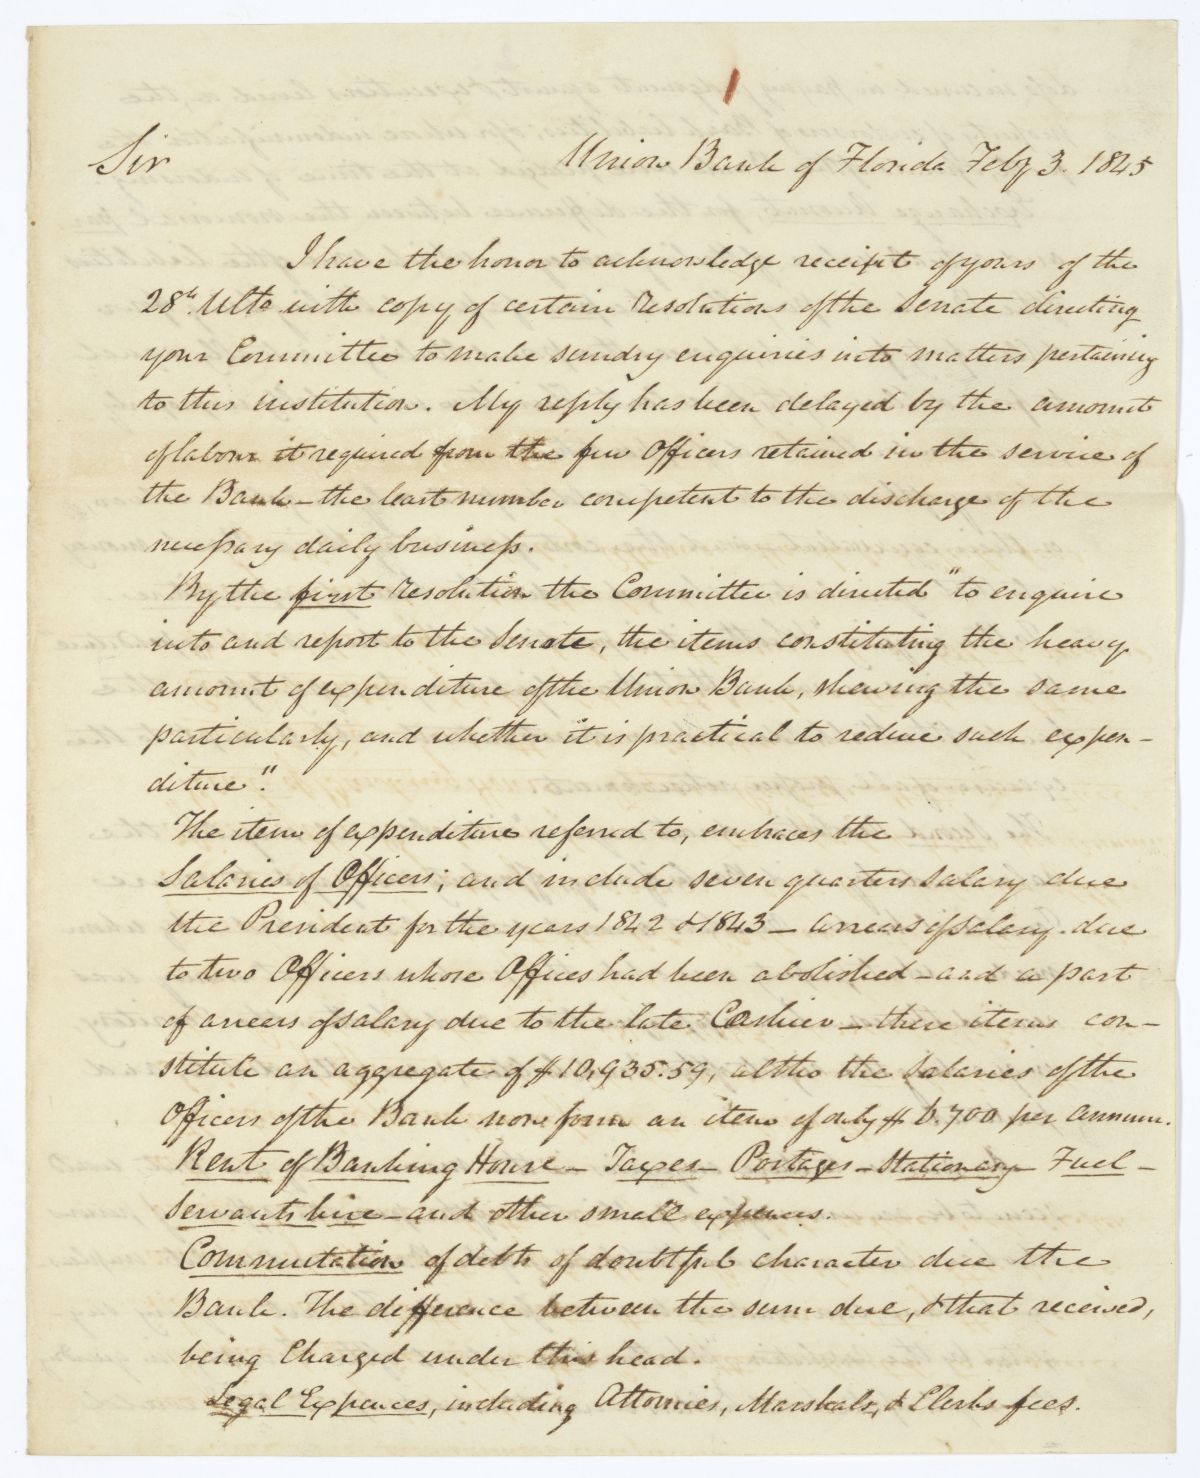 Sir Union Bank of Florida Feby 3. 1845
I have the honor to acknowledge receipt of yours of the
28th. Ulto with copy of certain resolutions of the Senate directing
your Committee to make sundry enquiries into matters pertaining
to this institution. My reply has been delayed by the amount
of labour it required from the few Officers retained in the service of
the Bank – the least number competent to the discharge of the
necessary daily business.
By the first resolution the Committee is directed "to enquire
into and report to the Senate, the items constituting the heavy
amount of expenditure of the Union Bank, shewing the same
particularly, and whether it is practical to reduce such expen-
diture".
The item of expenditure referred to, embraces the
Salaries of Officers; and include seven quarters salary due
the President for the years 1842 & 1843 – arrears of salary due
to two Officers whose Offices had been abolished – and a part
of arrears of salary due to the late Cashier – these items con-
stitute an aggregate of $10,935.59, altho the Salaries of the
Officers of the Bank now form an item of only $6.700 per annum.
Rent of Banking House – Taxes – Postages – Stationary – Fuel –
Servants hire – and other small expences.
Commutation of debts of doubtful character due the
Bank. The difference between the sum due, & that received,
being Charged under this head.
Legal Expences, including Attornies, Marshals, & Clerks fees.